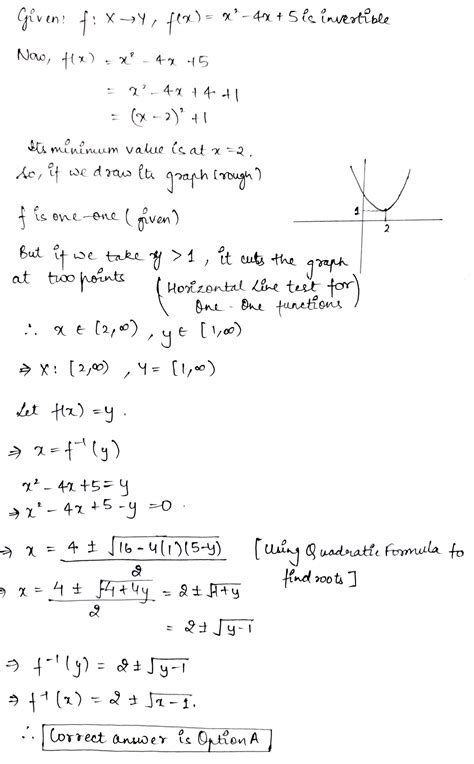 Given: f: X→Y, f(x) = x² - 4x + 5 is invertible
Now, f(x) = x² - 4x + 5
= x² - 4x + 4 + 1
= (x - 2)² + 1
Its minimum value is at x = 2.
So, if we draw its graph (rough)
f is one-one (given)
1
2
But if we take y > 1, it cuts the graph
at two points (Horizontal Line test for
One-One functions)
∴ x ∈ [2,∞), y ∈ [1,∞)
⇒ X: [2,∞), Y = [1,∞)
Let f(x) = y.
⇒ x = f⁻¹(y)
x² - 4x + 5 = y
⇒ x² - 4x + 5 - y = 0
⇒ x = (4 ± √(16 - 4(1)(5-y)))/2 [Using Quadratic Formula to
find roots]
⇒ x = (4 ± √(-4 + 4y))/2 = 2 ± √(-1 + y)
= 2 ± √(y-1)
⇒ f⁻¹(y) = 2 ± √(y-1)
⇒ f⁻¹(x) = 2 ± √(x-1).
∴ Correct answer is Option A